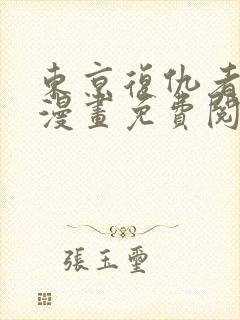 東京復仇者
漫畫免費閱
張玉璽